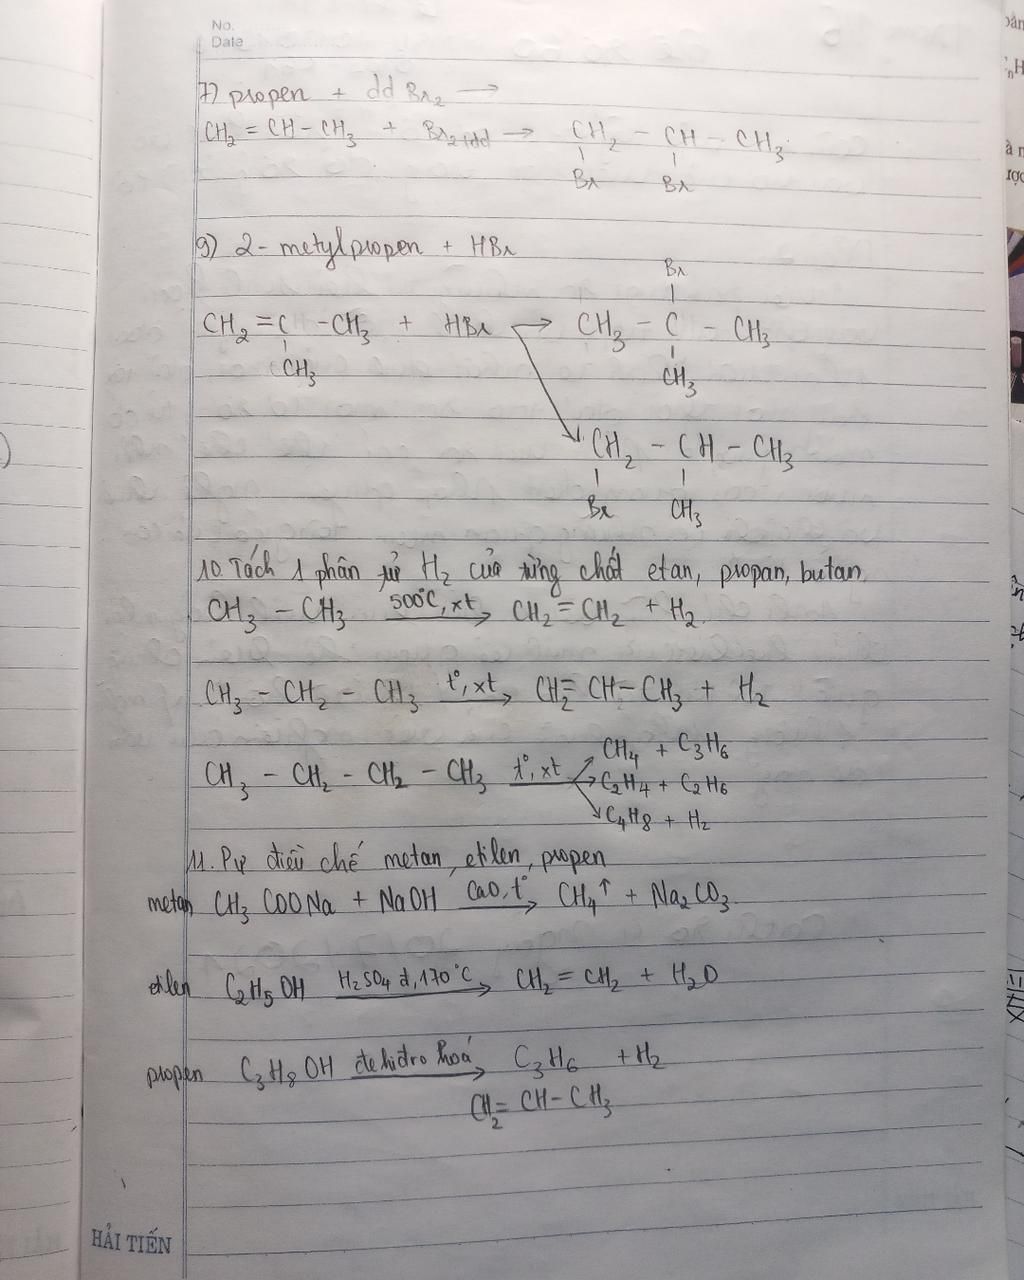 No.
Date
7) propen + dd Br₂ →
CH₂ = CH - CH₃ + Br₂ (dd) → CH₂ - CH - CH₃
Br Br
9) 2 - metylpropen + HBr
Br
CH₂ = C - CH₃ + HBr → CH₃ - C - CH₃
CH₃ CH₃
CH₂ - CH - CH₃
Br CH₃
10. Tách 1 phân tử H₂ của từng chất etan, propan, butan
CH₃ - CH₃ 500°C, xt → CH₂ = CH₂ + H₂
CH₃ - CH₂ - CH₃ t°, xt → CH₂ = CH - CH₃ + H₂
CH₄ + C₃H₆
CH₃ - CH₂ - CH₂ - CH₃ t°, xt → C₂H₄ + C₂H₆
C₄H₈ + H₂
11. Pư điều chế metan, etilen, propen
metan CH₃COONa + NaOH CaO, t° → CH₄↑ + Na₂CO₃
etilen C₂H₅OH H₂SO₄ đ, 170°C → CH₂ = CH₂ + H₂O
propen C₃H₈OH đehiđro hoá → C₃H₆ + H₂
CH₂ = CH - CH₃
HẢI TIẾN